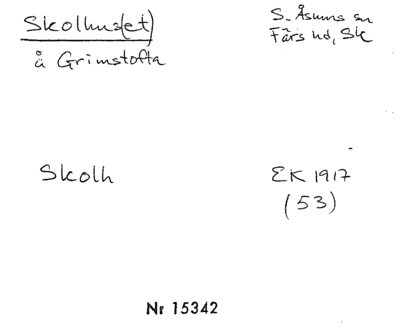 Skolhus(et)
å Grimstofta
S. Åsums sn
Färs hd, Sk
Skolh
EK 1917
(53)
Nr 15342